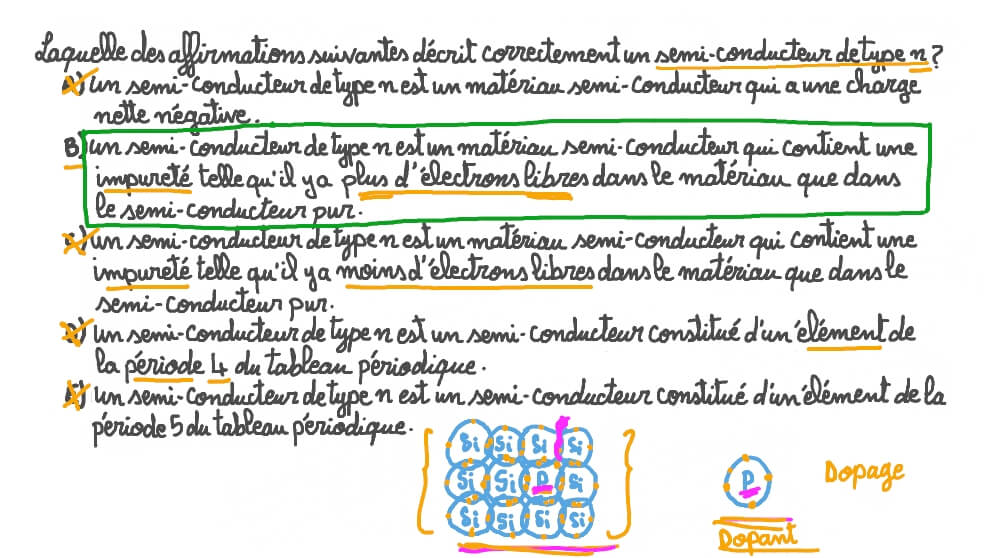 Laquelle des affirmations suivantes décrit correctement un semi-conducteur de type n?
A) un semi-conducteur de type n est un matériau semi-conducteur qui a une charge
nette négative.
B) un semi-conducteur de type n est un matériau semi-conducteur qui contient une
impureté telle qu'il y a plus d'électrons libres dans le matériau que dans
le semi-conducteur pur.
C) un semi-conducteur de type n est un matériau semi-conducteur qui contient une
impureté telle qu'il y a moins d'électrons libres dans le matériau que dans le
semi-conducteur pur.
D) un semi-conducteur de type n est un semi-conducteur constitué d'un élément de
la période 4 du tableau périodique.
E) un semi-conducteur de type n est un semi-conducteur constitué d'un élément de la
période 5 du tableau périodique.
Si Si Si Si
Si Si P Si
Si Si Si Si
P
Dopage
Dopant